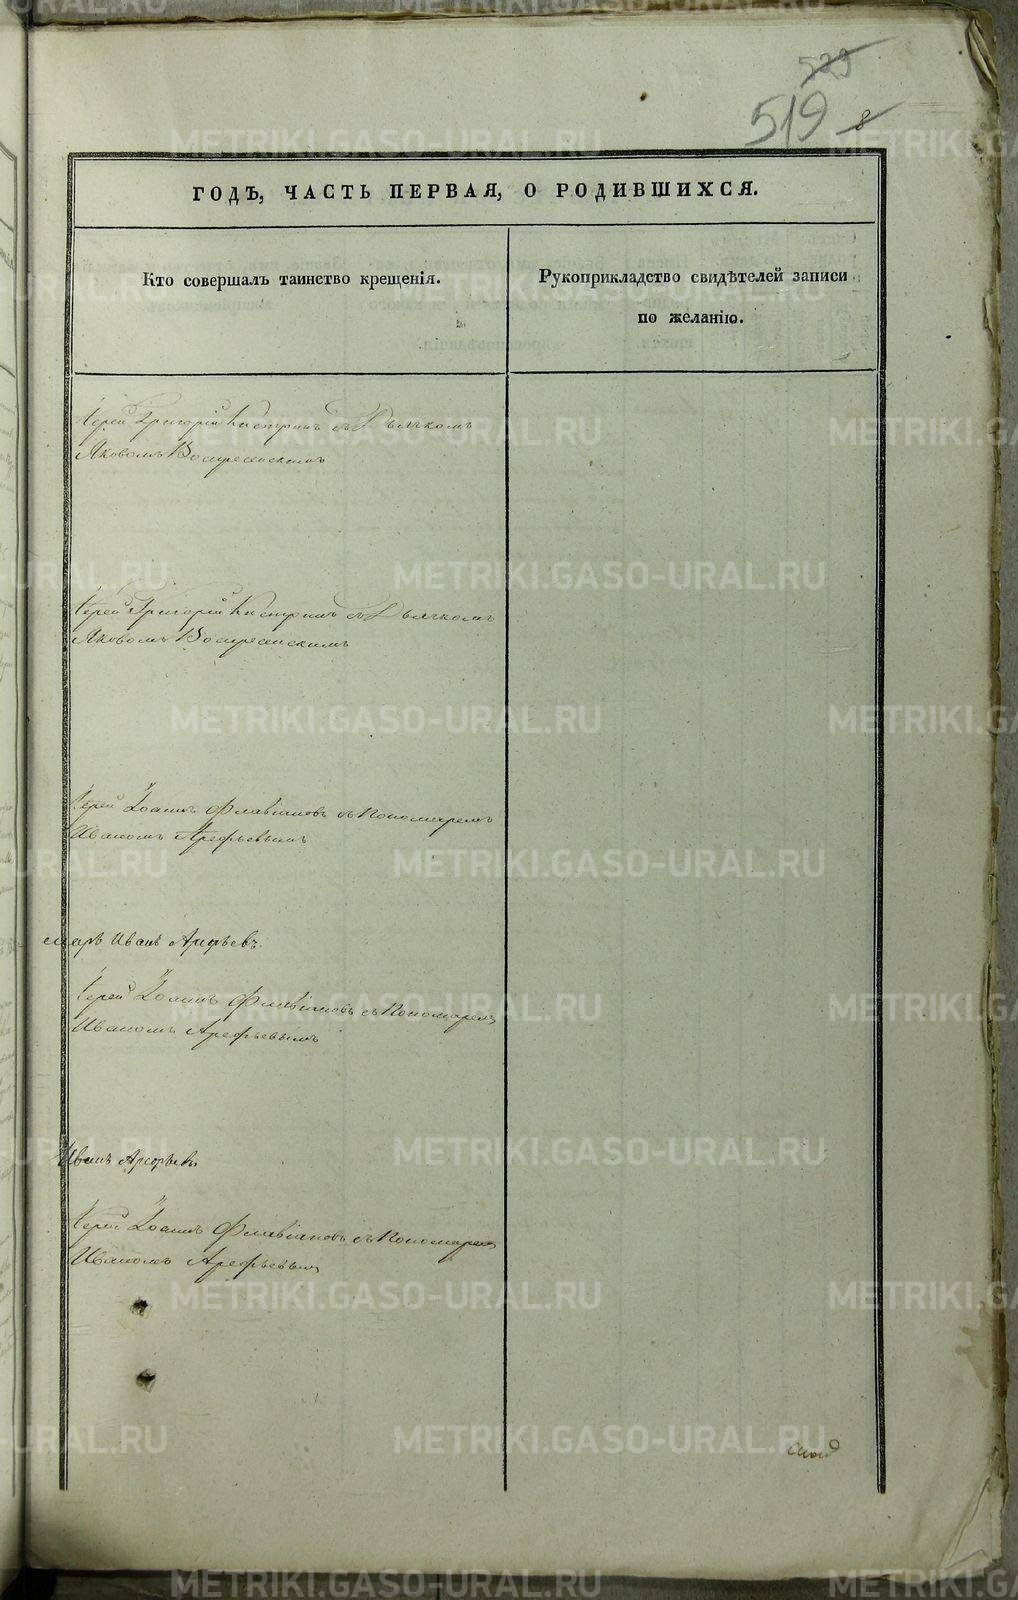 529
519 8
ГОДЪ, ЧАСТЬ ПЕРВАЯ, О РОДИВШИХСЯ.
Кто совершалъ таинство крещенія.
Рукоприкладство свидѣтелей записи
по желанію.
Іерей Григорій Кистринъ съ Дьячкомъ
Яковомъ Воскресенскимъ
Іерей Григорій Кистринъ съ Дьячкомъ
Яковомъ Воскресенскимъ
Іерей Іоаннъ Флавіановъ съ Пономаремъ
Иваномъ Арефьевымъ
Иванъ Арефьевъ.
Іерей Іоаннъ Флавіановъ съ Пономаремъ
Иваномъ Арефьевымъ
Иванъ Арефьевъ
Іерей Іоаннъ Флавіановъ съ Пономаремъ
Иваномъ Арефьевымъ
METRIKI.GASO-URAL.RU